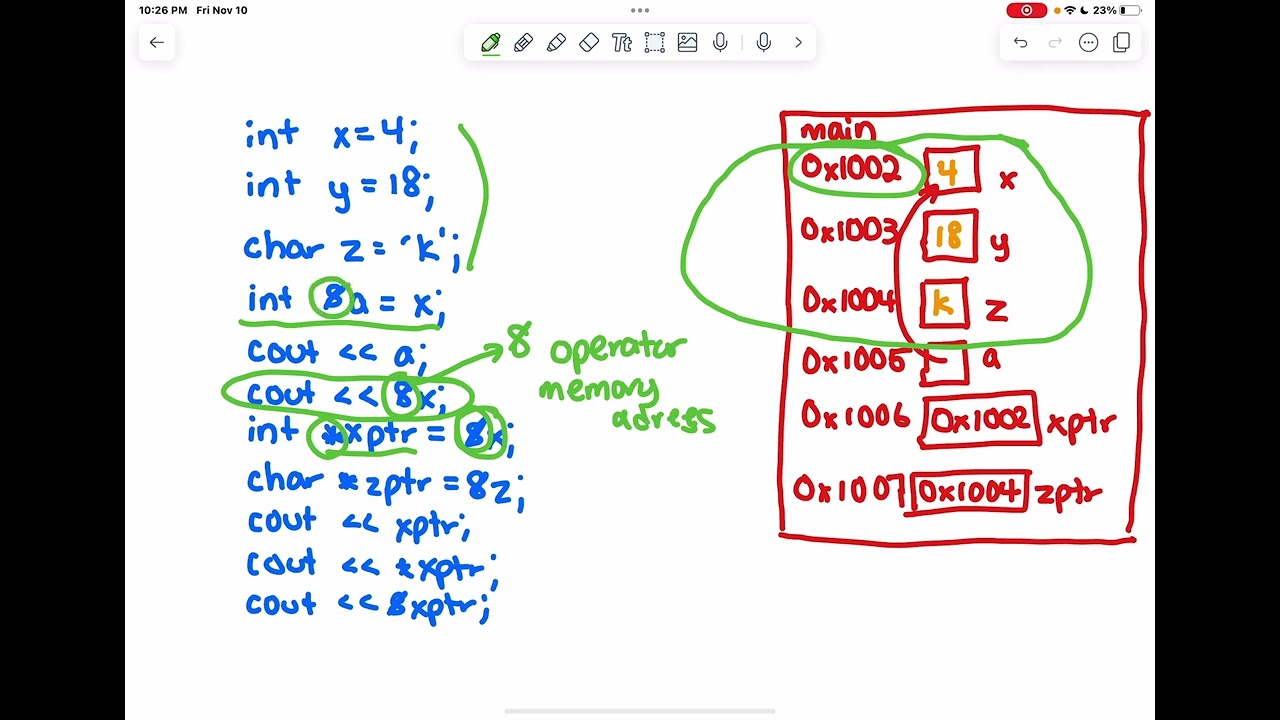 10:26 PM Fri Nov 10
23%
Tt
int x=4;
int y=18;
char z='k';
int &a=x;
cout << a;
cout << &x;
int *xptr = &x;
char *zptr = &z;
cout << xptr;
cout << *xptr;
cout << &xptr;
& operator
memory
adress
main
0x1002 4 x
0x1003 18 y
0x1004 k z
0x1005 a
0x1006 0x1002 xptr
0x1007 0x1004 zptr